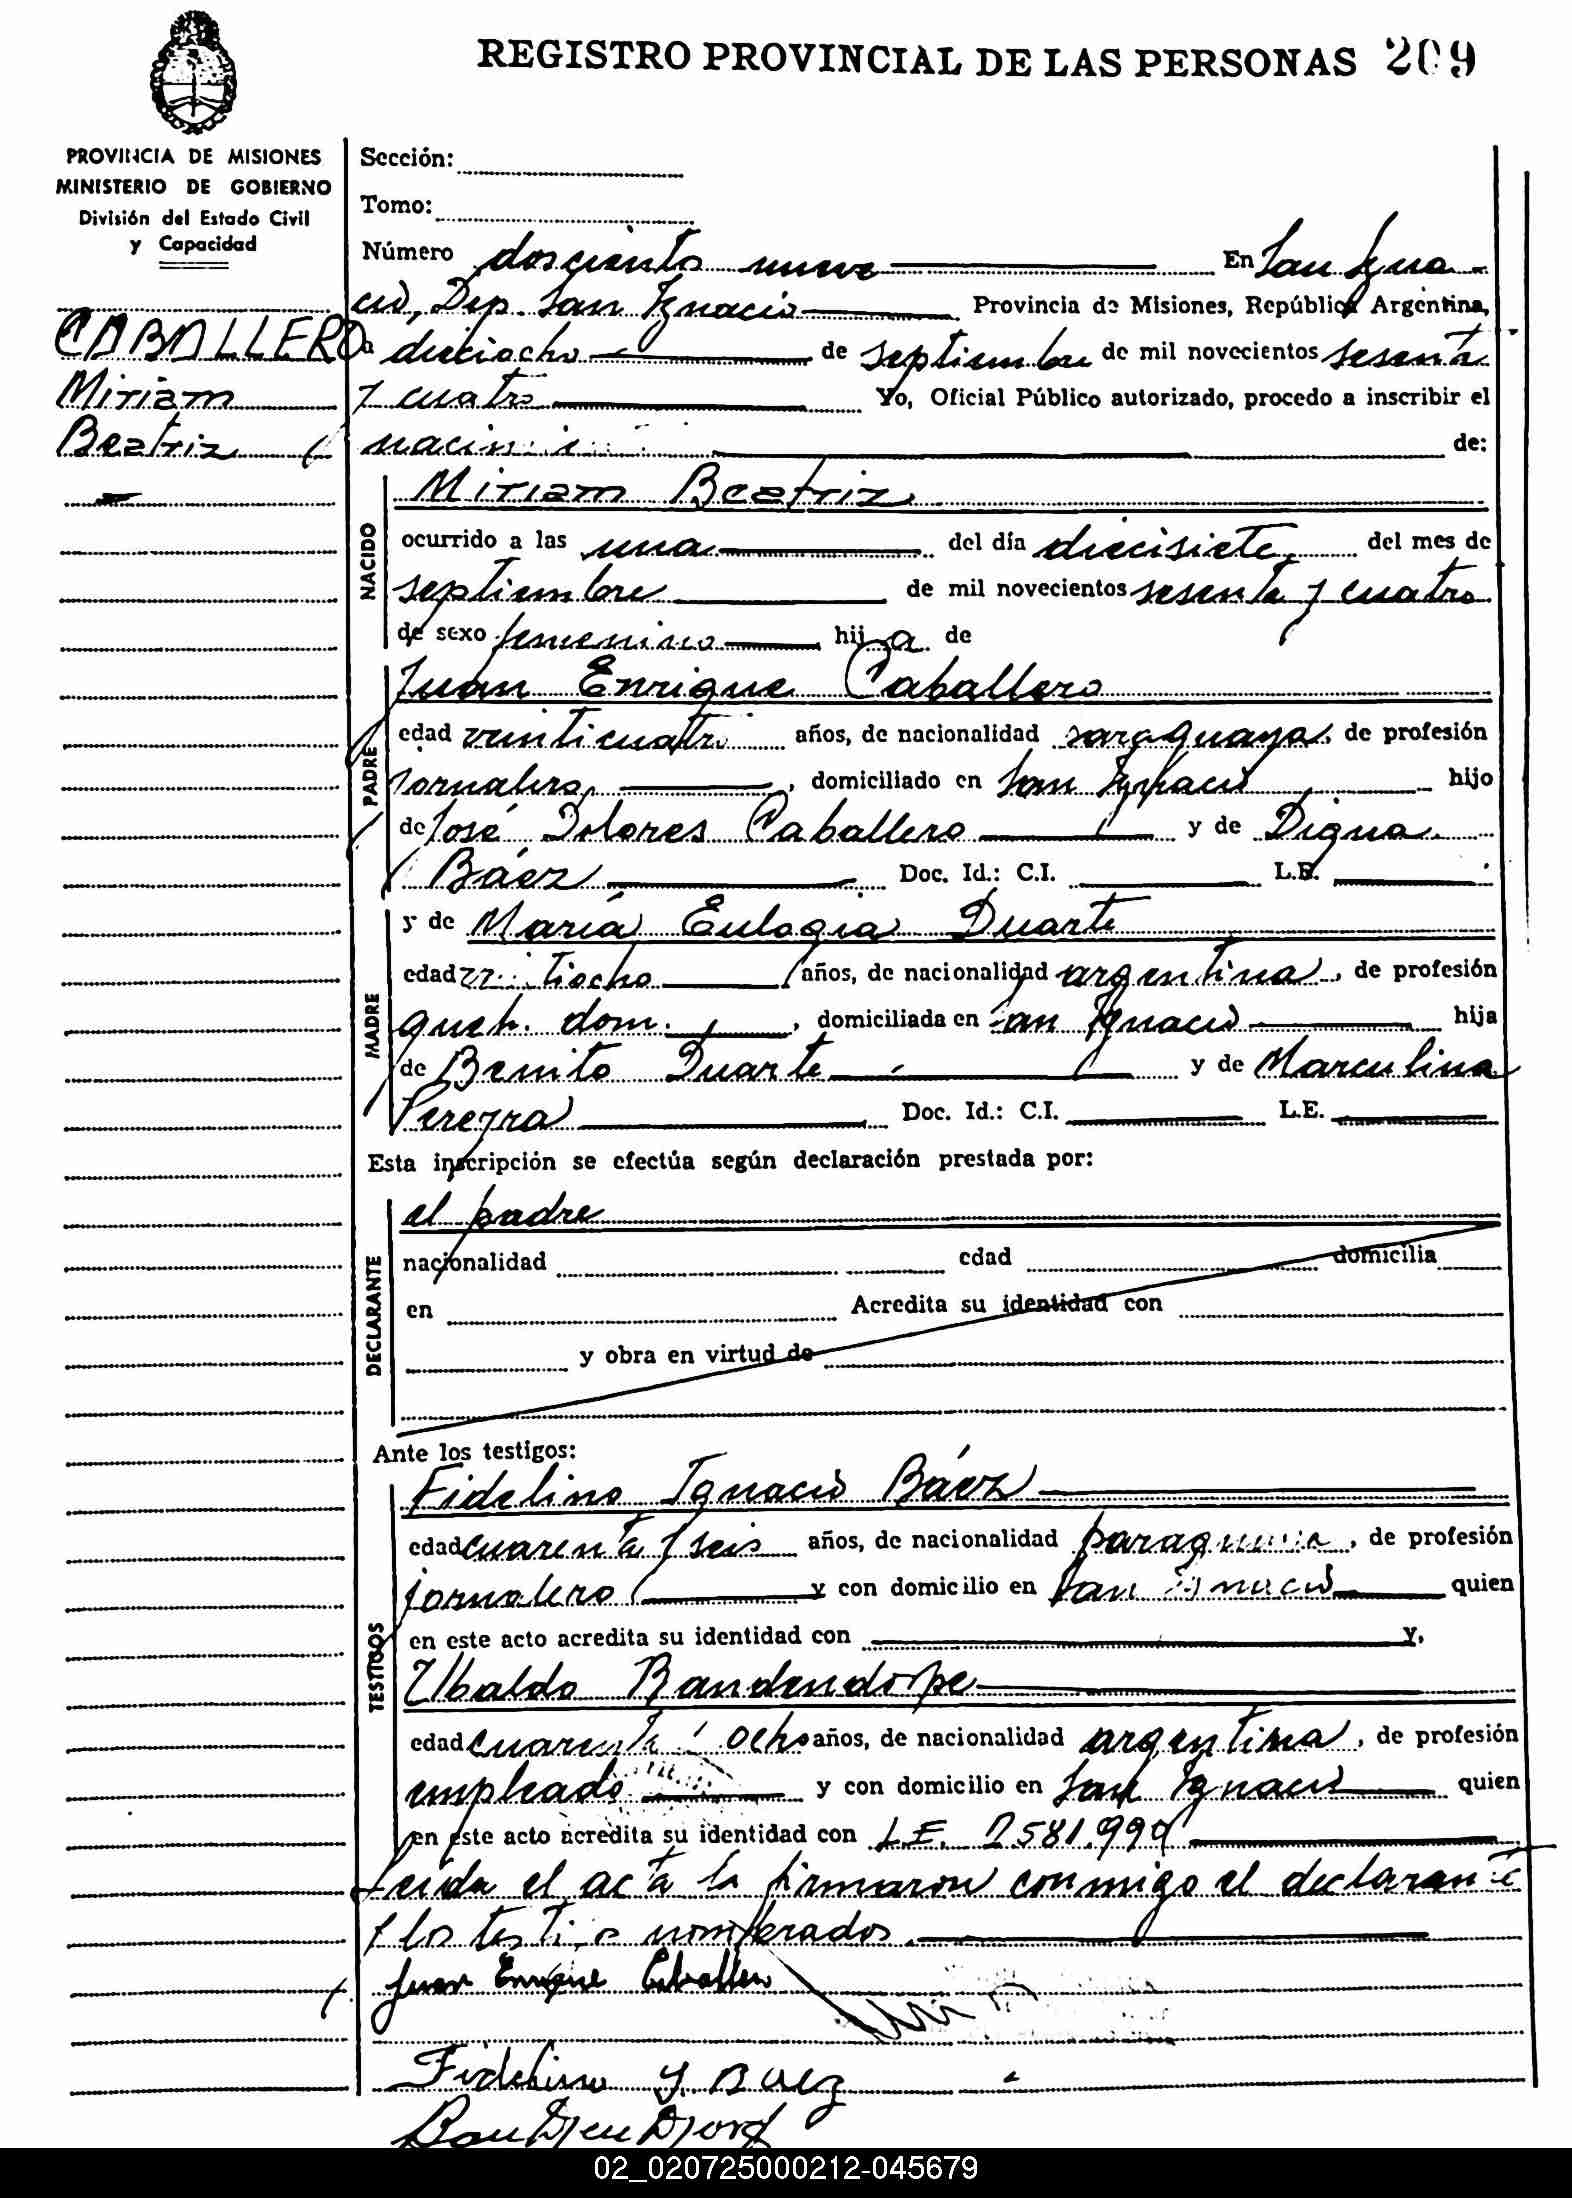 REGISTRO PROVINCIAL DE LAS PERSONAS 209
PROVINCIA DE MISIONES
MINISTERIO DE GOBIERNO
División del Estado Civil
y Capacidad
CABALLERO
Miriam
Beatriz
Sección:
Tomo:
Número dosciento nueve En San Igna-
cio, Dep. San Ignacio Provincia de Misiones, República Argentina,
a dieciocho de septiembre de mil novecientos sesenta
y cuatro Yo, Oficial Público autorizado, procedo a inscribir el
de:
NACIDO
Miriam Beatriz
ocurrido a las una del día diecisiete, del mes de
septiembre de mil novecientos sesenta y cuatro
de sexo femenino hija de
PADRE
Juan Enrique Caballero
edad veinticuatro años, de nacionalidad paraguaya, de profesión
jornalero, domiciliado en San Ignacio hijo
de José Dolores Caballero y de Digna
Báez Doc. Id.: C.I. L.E.
MADRE
y de María Eulogia Duarte
edad años, de nacionalidad argentina, de profesión
queh. dom., domiciliada en San Ignacio hija
de Benito Duarte y de Marculina
Pereyra Doc. Id.: C.I. L.E.
Esta inscripción se efectúa según declaración prestada por:
DECLARANTE
el padre
nacionalidad edad domicilia
en Acredita su identidad con
y obra en virtud de
Ante los testigos:
TESTIGOS
Fidelino Ignacio Báez
edad cuarenta y seis años, de nacionalidad paraguaya, de profesión
jornalero y con domicilio en San Ignacio quien
en este acto acredita su identidad con y,
Ubaldo Bandendorpe
edad cuarenta ocho años, de nacionalidad argentina, de profesión
empleado y con domicilio en San Ignacio quien
en este acto acredita su identidad con L.E. 2581.999
Leída el acta la firmaron conmigo el declarante
y los nombrados.
Juan Enrique Caballero
Fidelino Y. Baez
02_020725000212-045679